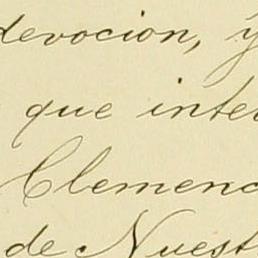 devocion, y
que inter
Clemenc
de Nuest